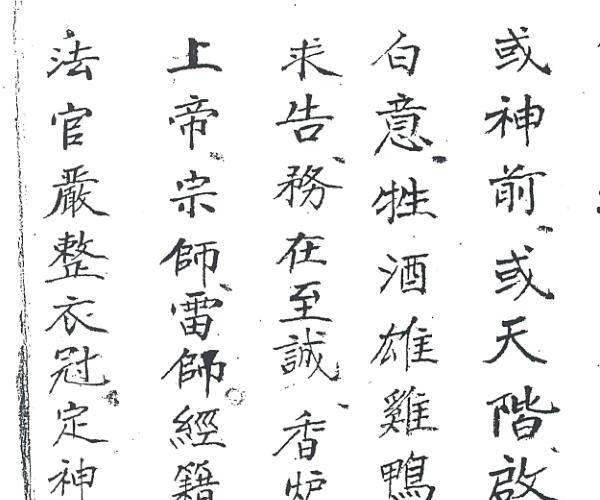 或神前或天階啟
白意牲酒雄雞鴨
求告務在至誠香炉
上帝宗師雷師經籍
法官嚴整衣冠定神